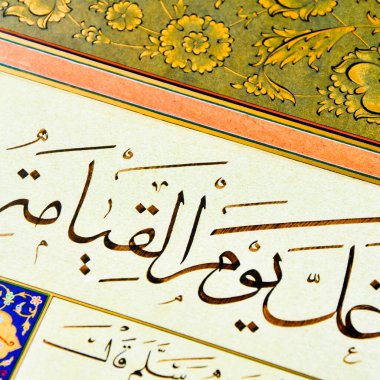 يوم القيامة
مسلم قال